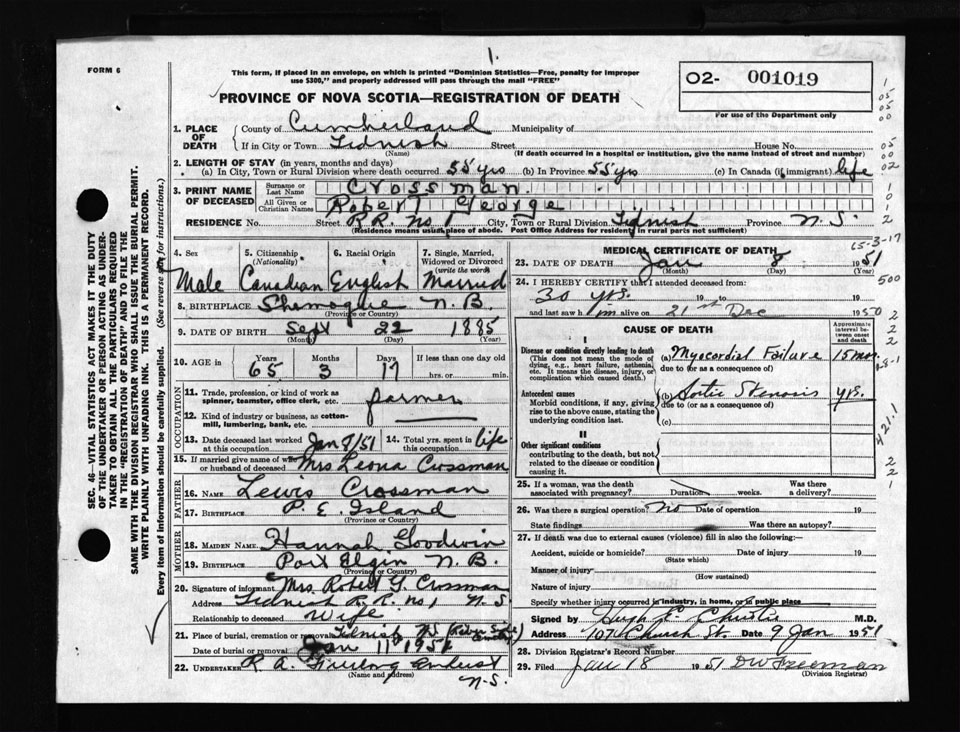 1.
FORM 6
This form, if placed in an envelope, on which is printed "Dominion Statistics—Free, penalty for improper
use $300," and properly addressed will pass through the mail "FREE"
PROVINCE OF NOVA SCOTIA—REGISTRATION OF DEATH
02- 001019
For use of the Department only
SEC. 46—VITAL STATISTICS ACT MAKES IT THE DUTY
OF THE UNDERTAKER OR PERSON ACTING AS UNDER-
TAKER TO OBTAIN ALL THE PARTICULARS REQUIRED
IN THE "REGISTRATION OF DEATH" AND TO FILE THE
SAME WITH THE DIVISION REGISTRAR WHO SHALL ISSUE THE BURIAL PERMIT.
WRITE PLAINLY WITH UNFADING INK. THIS IS A PERMANENT RECORD.
Every item of information should be carefully supplied. (See reverse side for instructions.)
1. PLACE OF DEATH County of Cumberland Municipality of
If in City or Town Tidnish Street House No.
(Name) (If death occurred in a hospital or institution, give the name instead of street and number)
2. LENGTH OF STAY (in years, months and days)
(a) In City, Town or Rural Division where death occurred 55 yrs (b) In Province 55 yrs (c) In Canada (if immigrant) life
3. PRINT NAME OF DECEASED Surname or Last Name Crossman.
All Given or Christian Names Robert George
RESIDENCE No. Street R.R. No 1 City, Town or Rural Division Tidnish Province N.S.
(Residence means usual place of abode. Post Office Address for residents in rural parts not sufficient)
4. Sex 5. Citizenship (Nationality) 6. Racial Origin 7. Single, Married, Widowed or Divorced? (write the word)
Male Canadian English Married
8. BIRTHPLACE Shemogue N.B
(Province or Country)
9. DATE OF BIRTH Sept 22 1885
(Month) (Day) (Year)
10. AGE IN Years Months Days If less than one day old
65 3 17 hrs. or min.
OCCUPATION
11. Trade, profession, or kind of work as
spinner, teamster, office clerk, etc. farmer
12. Kind of industry or business, as cotton-
mill, lumbering, bank, etc.
13. Date deceased last worked at this occupation Jan 8/51 14. Total yrs. spent in this occupation life
15. If married give name of wife or husband of deceased Mrs Leona Crossman
FATHER
16. NAME Lewis Crossman
17. BIRTHPLACE P.E. Island
(Province or Country)
MOTHER
18. MAIDEN NAME Hannah Goodwin
19. BIRTHPLACE Port Elgin N.B.
(Province or Country)
20. Signature of informant Mrs. Robert G Crossman
Address Tidnish R.R. no 1 N.S.
Relationship to deceased Wife
21. Place of burial, cremation or removal Tidnish
Date of burial or removal Jan 11th 1951
22. UNDERTAKER R.A. Amherst
(Name and address)
N.S.
MEDICAL CERTIFICATE OF DEATH
23. DATE OF DEATH Jan 8 1951
(Month) (Day) (Year)
24. I HEREBY CERTIFY that I attended deceased from:
30 yrs. 19 to 19
and last saw him alive on 21st Dec 1950
CAUSE OF DEATH
Approximate interval between onset and death
I
Disease or condition directly leading to death
(This does not mean the mode of
dying, e.g., heart failure, asthenia,
etc. It means the disease, injury, or
complication which caused death.)
(a) Myocardial Failure 15 min.
due to (or as a consequence of)
Antecedent causes
Morbid conditions, if any, giving
rise to the above cause, stating the
underlying condition last.
(b) Aortic Stenosis yrs.
due to (or as a consequence of)
(c)
II
Other significant conditions
contributing to the death, but not
related to the disease or condition
causing it.
25. If a woman, was the death associated with pregnancy? Duration weeks. Was there a delivery?
26. Was there a surgical operation? No Date of operation 19
State findings Was there an autopsy?
27. If death was due to external causes (violence) fill in also the following:
Accident, suicide or homicide? Date of injury 19
(State which)
Manner of injury
(How sustained)
Nature of injury
Specify whether injury occurred in industry, in home, or in public place
Signed by Hugh E. Christie M.D.
Address 107 Church St. Date 9 Jan 1951
28. Division Registrar's Record Number
29. Filed Jan 18 1951 DW Freeman
(Division Registrar)